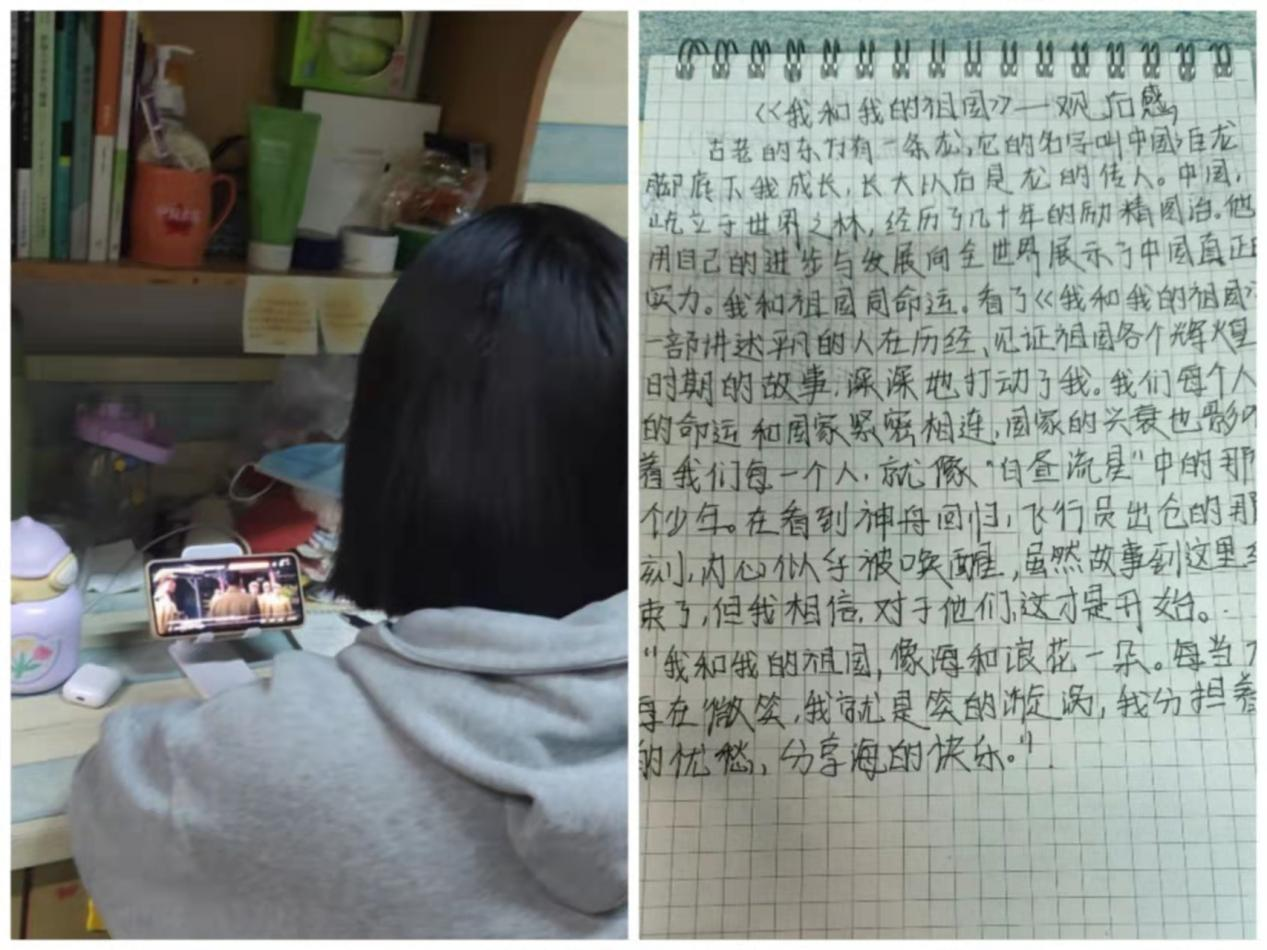 《我和我的祖国》—观后感
古老的东方有一条龙,它的名字叫中国,巨龙
脚底下我成长,长大以后是龙的传人。中国,
屹立于世界之林,经历了几十年的励精图治。他
用自己的进步与发展向全世界展示了中国真正
实力。我和祖国同命运。看了《我和我的祖国》
一部讲述平凡的人在历经、见证祖国各个辉煌
时期的故事,深深地打动了我。我们每个人
的命运和国家紧密相连,国家的兴衰也影响
着我们每一个人,就像“白昼流星”中的那
个少年。在看到神舟回归,飞行员出仓的那
刻,内心似乎被唤醒,虽然故事到这里
束了,但我相信,对于他们,这才是开始。
“我和我的祖国,像海和浪花一朵。每当
在微笑,我就是笑的漩涡,我分担着
的忧愁,分享海的快乐。”